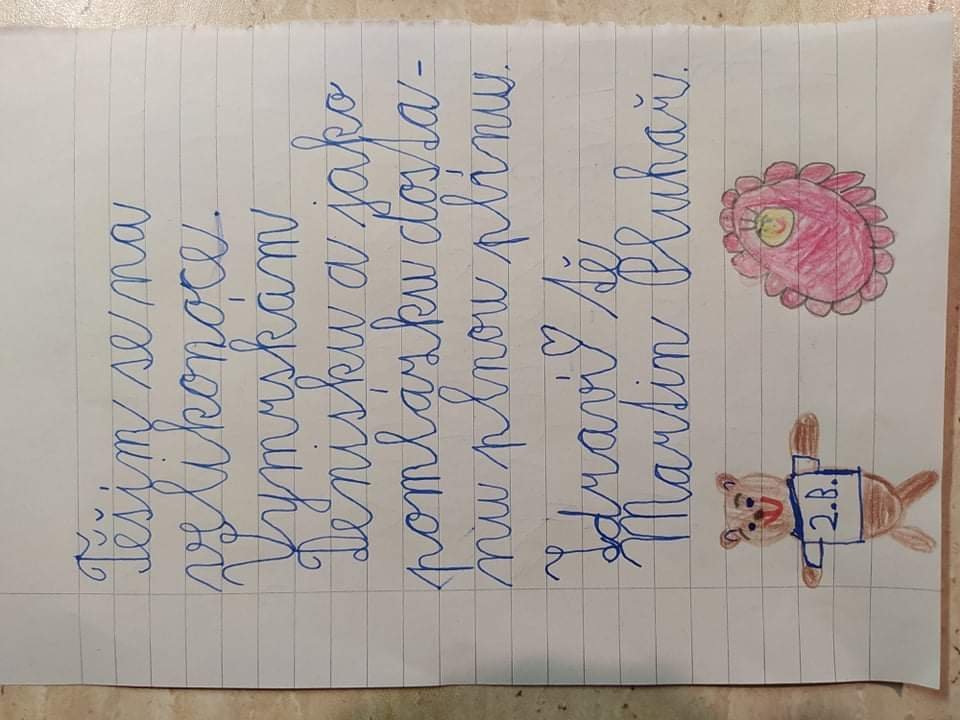 Těším se na
velikonoce.
Vymrskám
Denisku a jako
pomlázku dosta-
nu plnou plínu.
Zdraví ♡ Tě
Martin Pluhař.
2.B.